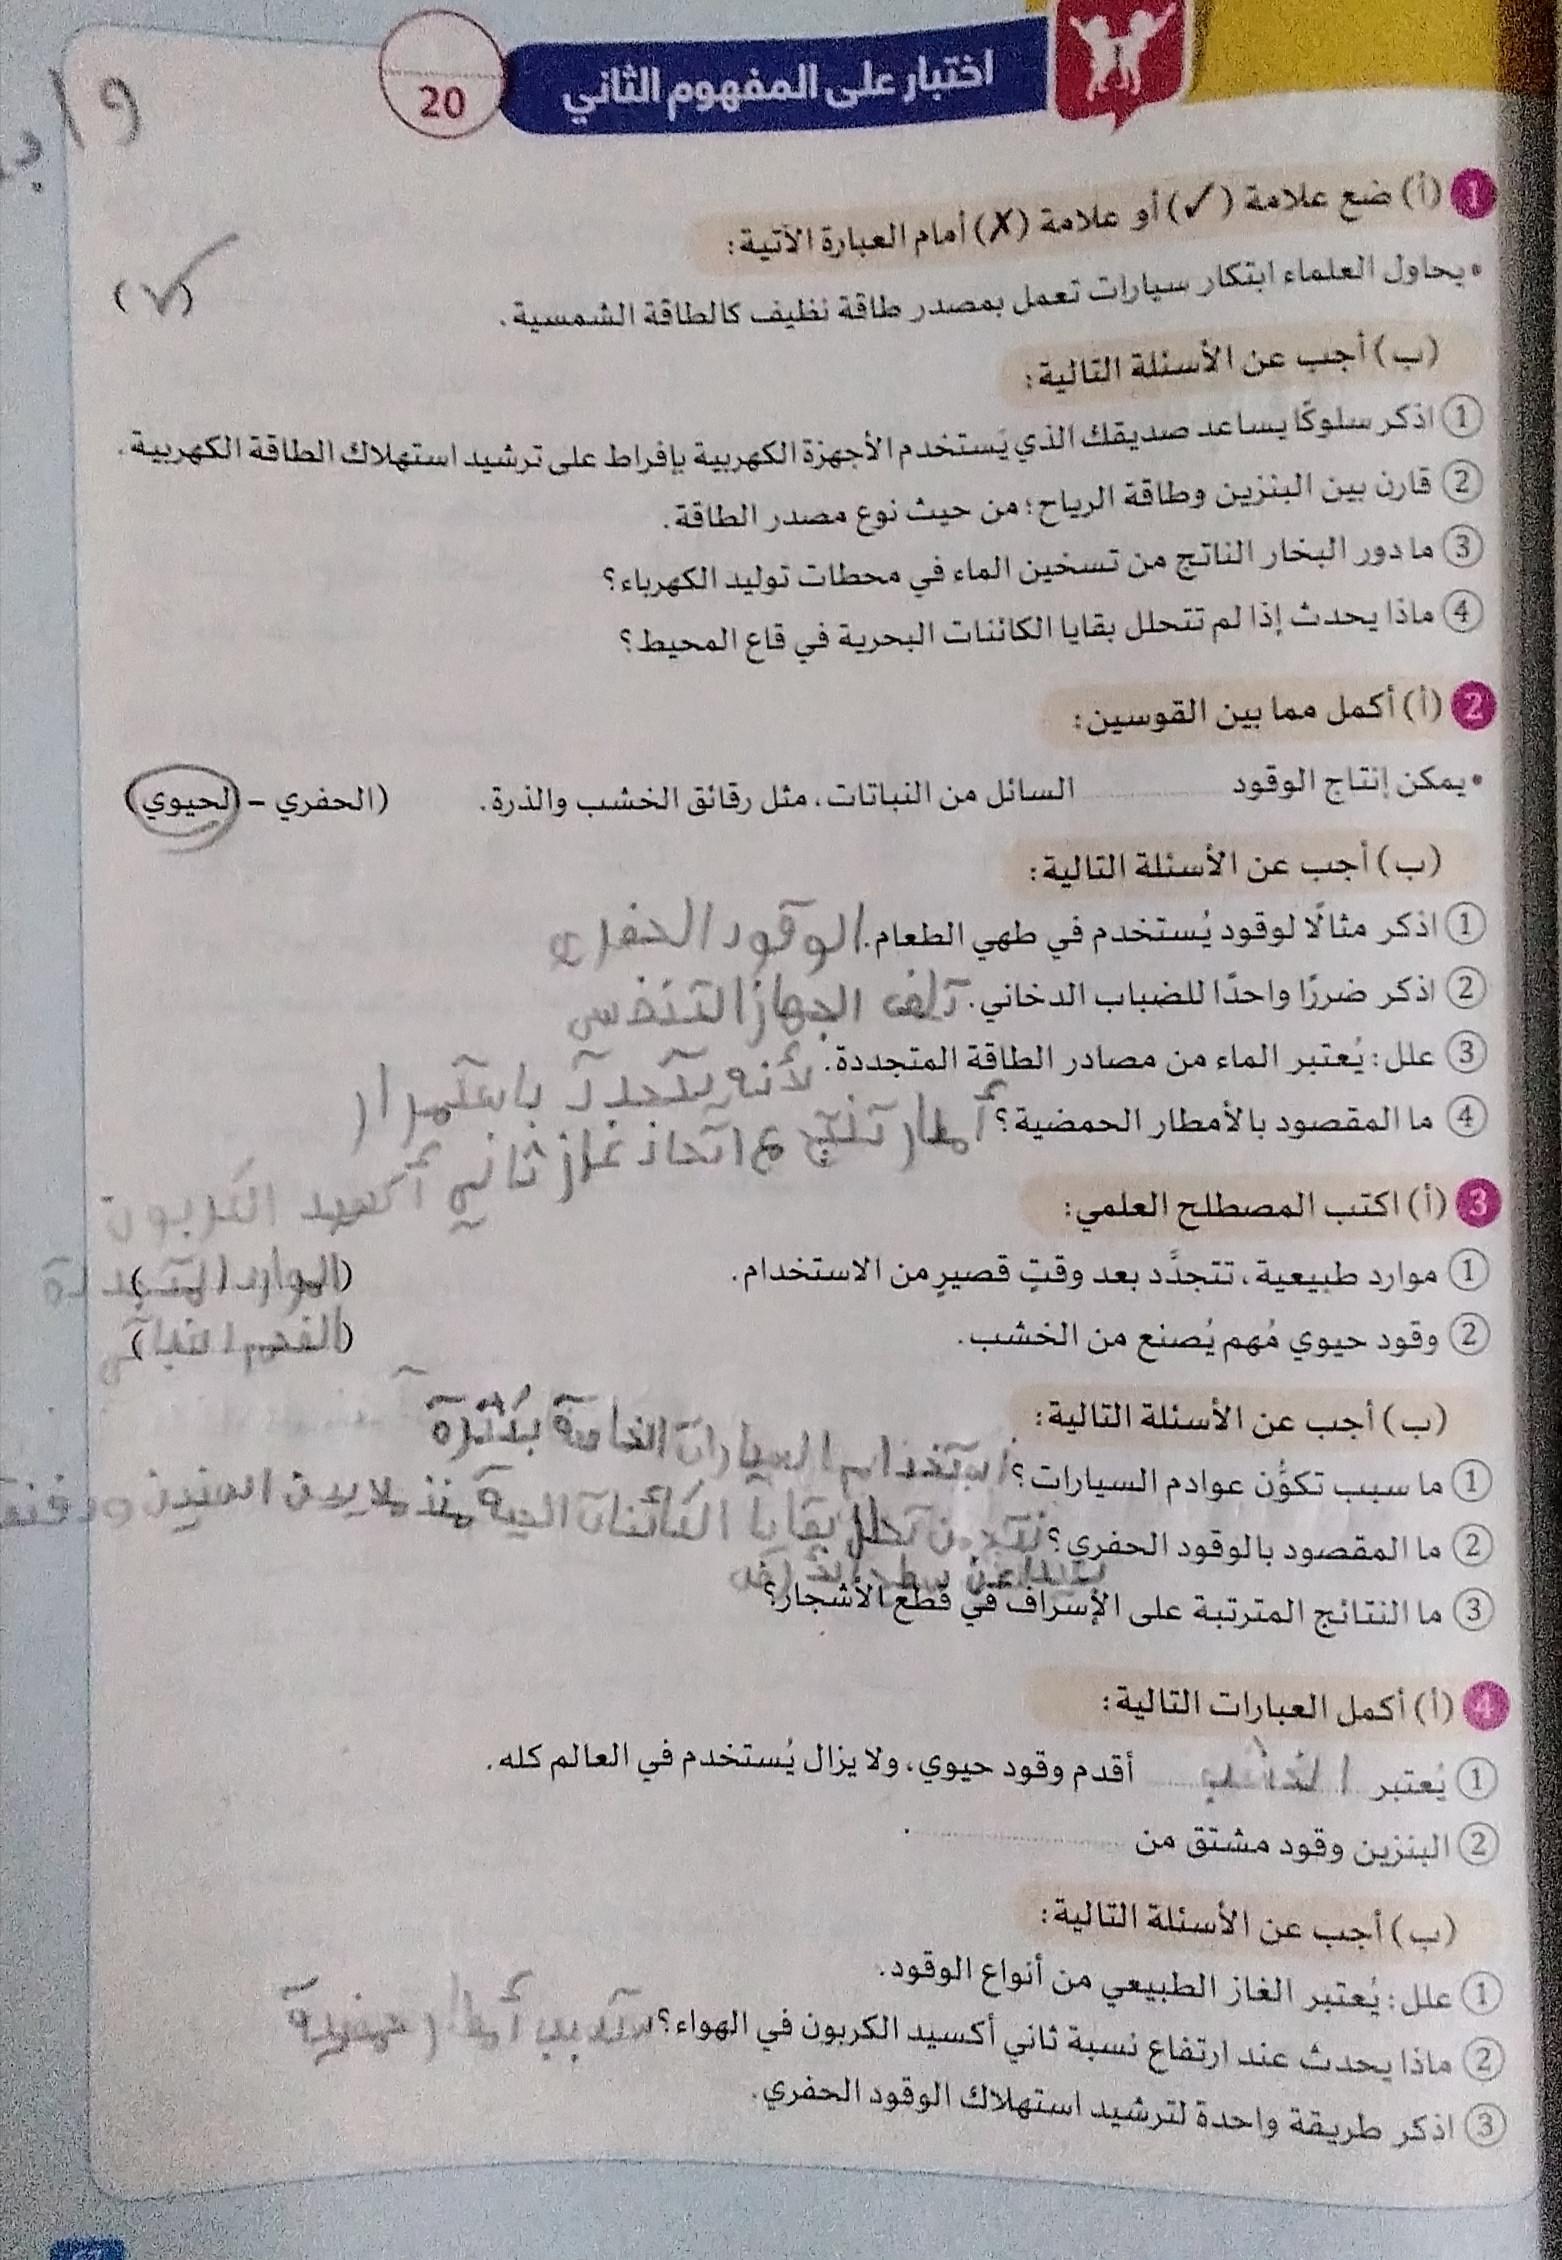 اختبار على المفهوم الثاني
20
1 (أ) ضع علامة (✓) أو علامة (✗) أمام العبارة الآتية:
• يحاول العلماء ابتكار سيارات تعمل بمصدر طاقة نظيف كالطاقة الشمسية. (✓)
(ب) أجب عن الأسئلة التالية:
① اذكر سلوكًا يساعد صديقك الذي يَستخدم الأجهزة الكهربية بإفراط على ترشيد استهلاك الطاقة الكهربية.
② قارن بين البنزين وطاقة الرياح؛ من حيث نوع مصدر الطاقة.
③ ما دور البخار الناتج من تسخين الماء في محطات توليد الكهرباء؟
④ ماذا يحدث إذا لم تتحلل بقايا الكائنات البحرية في قاع المحيط؟
2 (أ) أكمل مما بين القوسين:
• يمكن إنتاج الوقود ............ السائل من النباتات، مثل رقائق الخشب والذرة. (الحفري - الحيوي)
(ب) أجب عن الأسئلة التالية:
① اذكر مثالًا لوقود يُستخدم في طهي الطعام. الوقود الحفرى
② اذكر ضررًا واحدًا للضباب الدخاني. تلف الجهاز التنفسى
③ علل: يُعتبر الماء من مصادر الطاقة المتجددة. لأنه يتجدد باستمرار
④ ما المقصود بالأمطار الحمضية؟ أمطار تنتج اتحاذ غاز ثاني أكسيد الكربون
3 (أ) اكتب المصطلح العلمي:
① موارد طبيعية، تتجدَّد بعد وقتٍ قصيرٍ من الاستخدام. (الموارد المتجددة)
② وقود حيوي مُهم يُصنع من الخشب. (الفحم النباتي)
(ب) أجب عن الأسئلة التالية:
① ما سبب تكوُّن عوادم السيارات؟ استخدام السيارات الخاصة بكثرة
② ما المقصود بالوقود الحفري؟ نتج من تحلل بقايا الكائنات الحية منذ ملايين السنين ودفنة
بعيدا عن سطح الأرض
③ ما النتائج المترتبة على الإسراف في قطع الأشجار؟
4 (أ) أكمل العبارات التالية:
① يُعتبر الخشب أقدم وقود حيوي، ولا يزال يُستخدم في العالم كله.
② البنزين وقود مشتق من ............ .
(ب) أجب عن الأسئلة التالية:
① علل: يُعتبر الغاز الطبيعي من أنواع الوقود.
② ماذا يحدث عند ارتفاع نسبة ثاني أكسيد الكربون في الهواء؟ أمطار حمضية
③ اذكر طريقة واحدة لترشيد استهلاك الوقود الحفري.